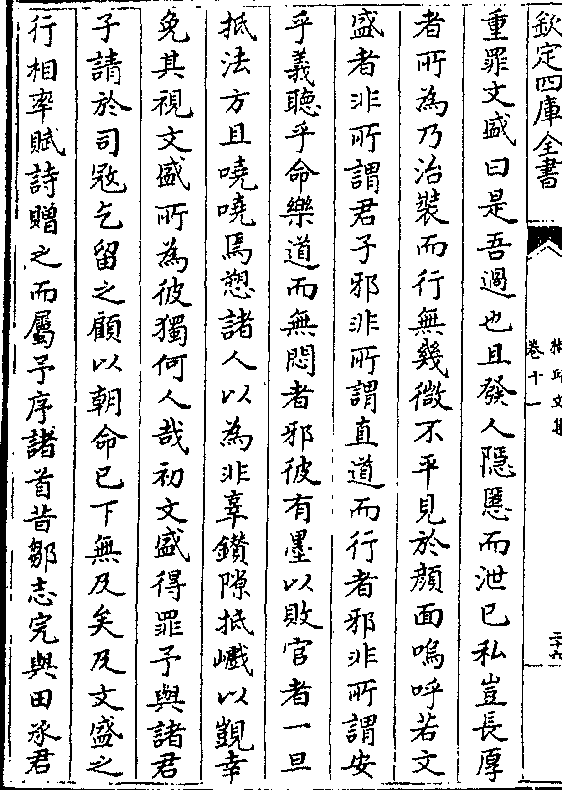 欽定四庫全書
卷十一
二十六
重罪文盛曰是吾過也且發人隱慝而泄已私豈長厚
者所為乃治裝而行無幾微不平見於顔面嗚呼若文
盛者非所謂君子邪非所謂直道而行者邪非所謂安
乎義聽乎命樂道而無悶者邪彼有墨以敗官者一旦
抵法方且嘵嘵焉愬諸人以為非辜鑽隙抵巇以覬幸
免其視文盛所為彼獨何人哉初文盛得罪予與諸君
子請於司宼乞留之顧以朝命已下無及矣及文盛之
行相率賦詩贈之而屬予序諸首昔鄒志完與田承君